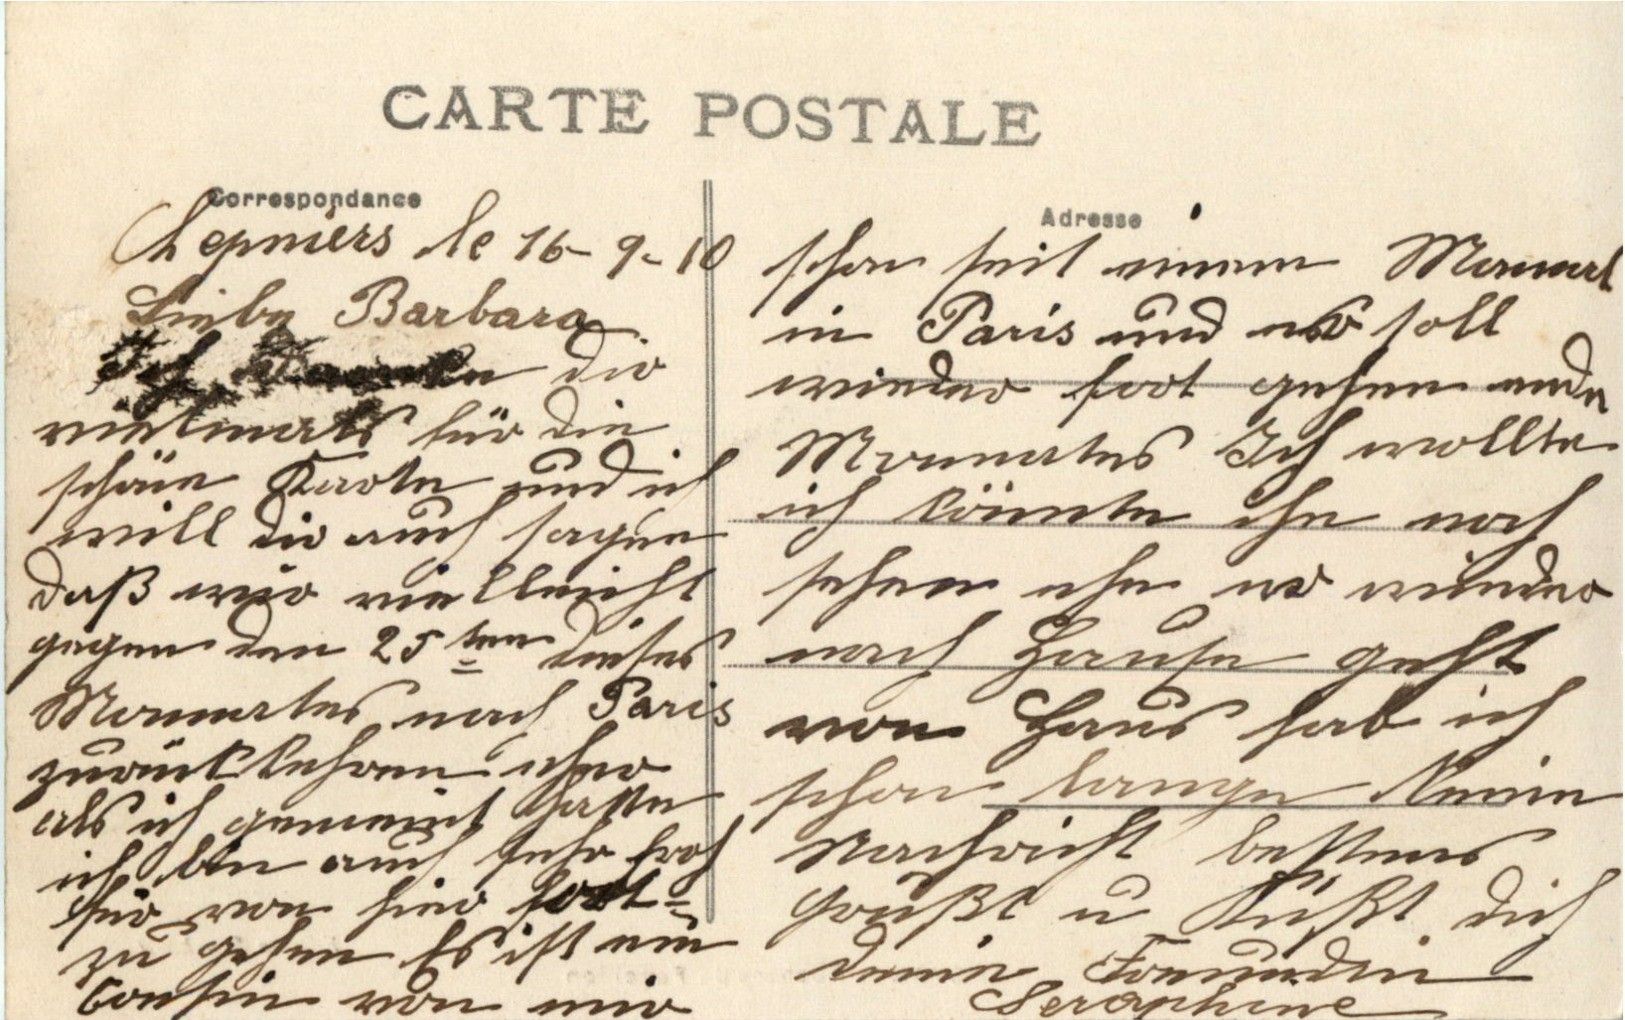 CARTE POSTALE
Correspondance
le 16-9-10
Liebe Barbara
Ich Danke dir
vielmals für die
schöne Karte und ich
will dir auch sagen
daß wir vielleicht
gegen den 25ten dieses
Monnates nach Paris
zurückkehren eher
als ich gemeint hatte
ich bin auch sehr froh
für von hier fort-
zu gehen Es ist ein
Cousin von mir
Adresse
schon seit einem Monnat
in Paris und er soll
wieder fort gehen ende
Monnates Ich wollte
ich könnte ihn noch
sehen ehe er wieder
nach Hause geht
von Haus hab ich
schon lange Keine
Nachricht bestens
grüßt u Küßt dich
deine Freundin
Seraphine